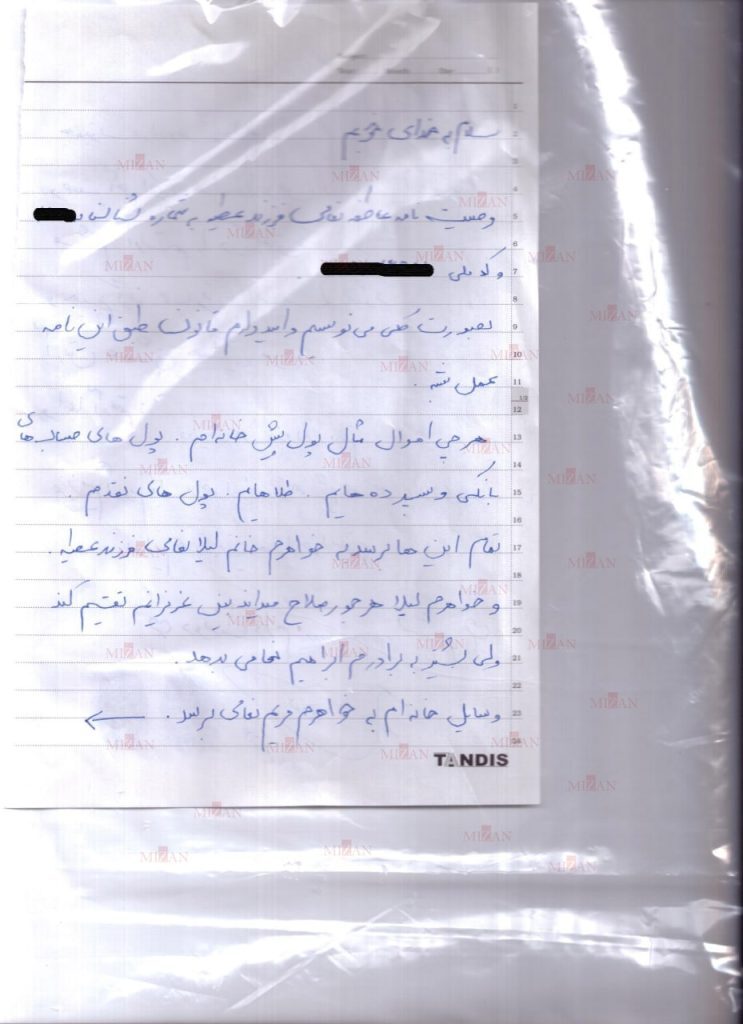 سلام به خدای خوبم
وصیت نامه عاطفه نعامی فرزند عطیه به شماره شناسنامه
و کد ملی
بصورت کلی می نویسم و امیدوارم قانون طبق این نامه
عمل کنه.
هرچی اموال مثال پول پیش خانه ام. پول های حساب های
بانکی و سپرده هایم. طلاهایم. پول های نقدم.
تمام این ها برسد به خواهرم خانم لیلا نعامی فرزند عطیه.
و خواهرم لیلا هرجور صلاح میداند بین عزیزانم تقسیم کند
ولی بیشتر به برادرم ابراهیم نعامی بدهد.
وسایل خانه ام به خواهرم مریم نعامی برسد.
TANDIS
MIZAN